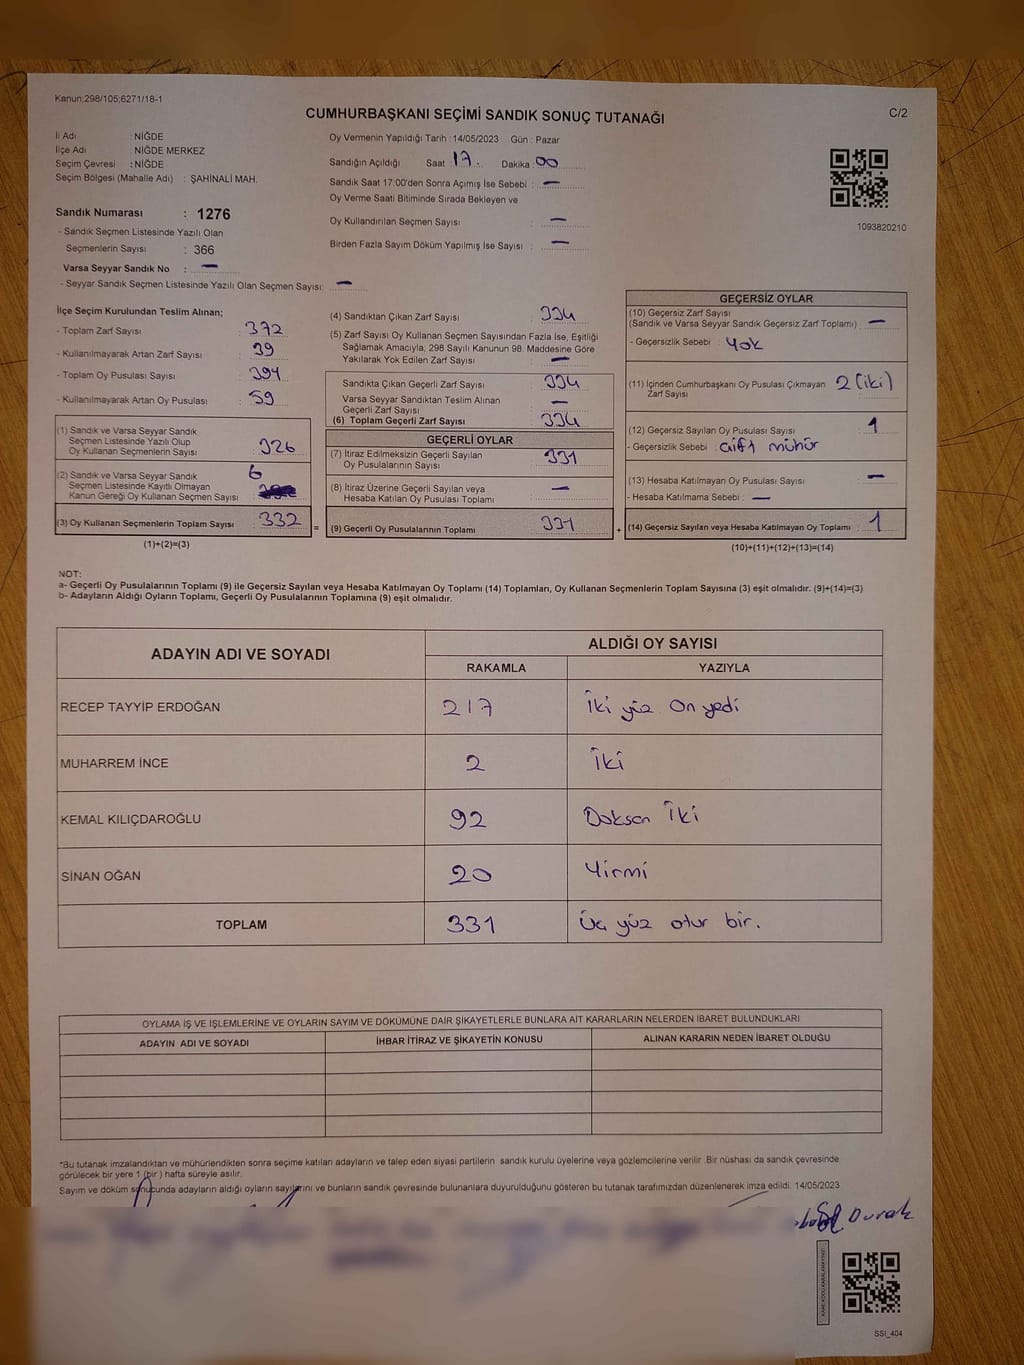 Kanun;298/105;6271/18-1
CUMHURBAŞKANI SEÇİMİ SANDIK SONUÇ TUTANAĞI
C/2
İl Adı : NİĞDE
İlçe Adı : NİĞDE MERKEZ
Seçim Çevresi : NİĞDE
Seçim Bölgesi (Mahalle Adı) : ŞAHİNALİ MAH.
Oy Vermenin Yapıldığı Tarih : 14/05/2023 Gün : Pazar
Sandığın Açıldığı Saat : 17 Dakika : 00
Sandık Saat 17:00'den Sonra Açımış İse Sebebi : —
Oy Verme Saati Bitiminde Sırada Bekleyen ve
Oy Kullandırılan Seçmen Sayısı : —
Birden Fazla Sayım Döküm Yapılmış İse Sayısı : —
1093820210
Sandık Numarası : 1276
- Sandık Seçmen Listesinde Yazılı Olan
Seçmenlerin Sayısı : 366
Varsa Seyyar Sandık No : —
- Seyyar Sandık Seçmen Listesinde Yazılı Olan Seçmen Sayısı: —
İlçe Seçim Kurulundan Teslim Alınan;
- Toplam Zarf Sayısı : 372
- Kullanılmayarak Artan Zarf Sayısı : 39
- Toplam Oy Pusulası Sayısı : 394
- Kullanılmayarak Artan Oy Pusulası : 59
(1) Sandık ve Varsa Seyyar Sandık
Seçmen Listesinde Yazılı Olup
Oy Kullanan Seçmenlerin Sayısı : 326
(2) Sandık ve Varsa Seyyar Sandık
Seçmen Listesinde Kayıtlı Olmayan
Kanun Gereği Oy Kullanan Seçmen Sayısı : 6
(3) Oy Kullanan Seçmenlerin Toplam Sayısı : 332
(1)+(2)=(3)
(4) Sandıktan Çıkan Zarf Sayısı : 334
(5) Zarf Sayısı Oy Kullanan Seçmen Sayısından Fazla İse, Eşitliği
Sağlamak Amacıyla; 298 Sayılı Kanunun 98. Maddesine Göre
Yakılarak Yok Edilen Zarf Sayısı : —
Sandıkta Çıkan Geçerli Zarf Sayısı : 334
Varsa Seyyar Sandıktan Teslim Alınan
Geçerli Zarf Sayısı : —
(6) Toplam Geçerli Zarf Sayısı : 334
GEÇERLİ OYLAR
(7) İtiraz Edilmeksizin Geçerli Sayılan
Oy Pusulalarının Sayısı : 331
(8) İtiraz Üzerine Geçerli Sayılan veya
Hesaba Katılan Oy Pusulası Toplamı : —
= (9) Geçerli Oy Pusulalarının Toplamı : 331
GEÇERSİZ OYLAR
(10) Geçersiz Zarf Sayısı
(Sandık ve Varsa Seyyar Sandık Geçersiz Zarf Toplamı) : —
- Geçersizlik Sebebi : Yok
(11) İçinden Cumhurbaşkanı Oy Pusulası Çıkmayan 2 (iki)
Zarf Sayısı
(12) Geçersiz Sayılan Oy Pusulası Sayısı : 1
- Geçersizlik Sebebi : çift mühür
(13) Hesaba Katılmayan Oy Pusulası Sayısı : —
- Hesaba Katılmama Sebebi : —
+ (14) Geçersiz Sayılan veya Hesaba Katılmayan Oy Toplamı : 1
(10)+(11)+(12)+(13)=(14)
NOT:
a- Geçerli Oy Pusulalarının Toplamı (9) ile Geçersiz Sayılan veya Hesaba Katılmayan Oy Toplamı (14) Toplamları, Oy Kullanan Seçmenlerin Toplam Sayısına (3) eşit olmalıdır. (9)+(14)=(3)
b- Adayların Aldığı Oyların Toplamı, Geçerli Oy Pusulalarının Toplamına (9) eşit olmalıdır.
ADAYIN ADI VE SOYADI
ALDIĞI OY SAYISI
RAKAMLA YAZIYLA
RECEP TAYYİP ERDOĞAN 217 İki yüz On yedi
MUHARREM İNCE 2 İki
KEMAL KILIÇDAROĞLU 92 Doksan İki
SİNAN OĞAN 20 Yirmi
TOPLAM 331 Üç yüz otur bir.
OYLAMA İŞ VE İŞLEMLERİNE VE OYLARIN SAYIM VE DÖKÜMÜNE DAİR ŞİKAYETLERLE BUNLARA AİT KARARLARIN NELERDEN İBARET BULUNDUKLARI
ADAYIN ADI VE SOYADI İHBAR İTİRAZ VE ŞİKAYETİN KONUSU ALINAN KARARIN NEDEN İBARET OLDUĞU
*Bu tutanak imzalandıktan ve mühürlendikten sonra seçime katılan adayların ve talep eden siyasi partilerin sandık kurulu üyelerine veya gözlemcilerine verilir. Bir nüshası da sandık çevresinde
görülecek bir yere 1 (bir) hafta süreyle asılır.
Sayım ve döküm sonucunda adayların aldığı oyların sayılarını ve bunların sandık çevresinde bulunanlara duyurulduğunu gösteren bu tutanak tarafımızdan düzenlenerek imza edildi. 14/05/2023
Durak
SSİ_404